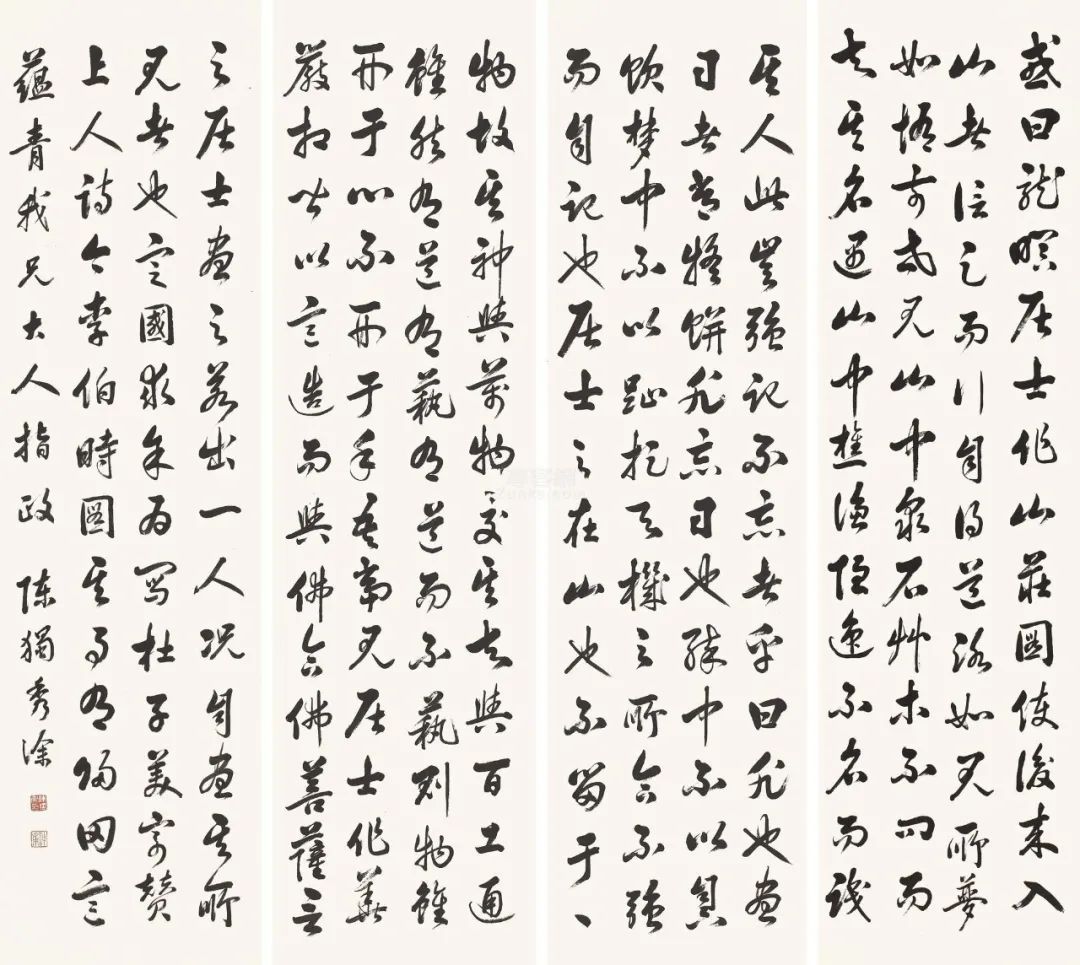 或曰龍瞑居士作山莊圖使後来入
山者信足而行自得道路如見所夢
如悟前世見山中泉石艸木不問而
知其名遇山中樵漁隱逸不名而識
其人此豈强記不忘者乎曰非也畫
日者常疑餅非忘日也醉中不以鼻
飲夢中不以趾捉天機之所合不强
而自記也居士之在山也不留于一
物故其神與萬物交其知與百工通
雖然有道有藝有道而不藝則物雖
形于心不形于手吾嘗見居士作華
嚴相皆以意造而與佛合佛菩薩言
之居士畫之若出一人況自畫其所
見者也定國求余為寫杜子美寄贊
上人詩令李伯時圖其事有歸田意
蘊青我兄大人指政 陳獨秀塗